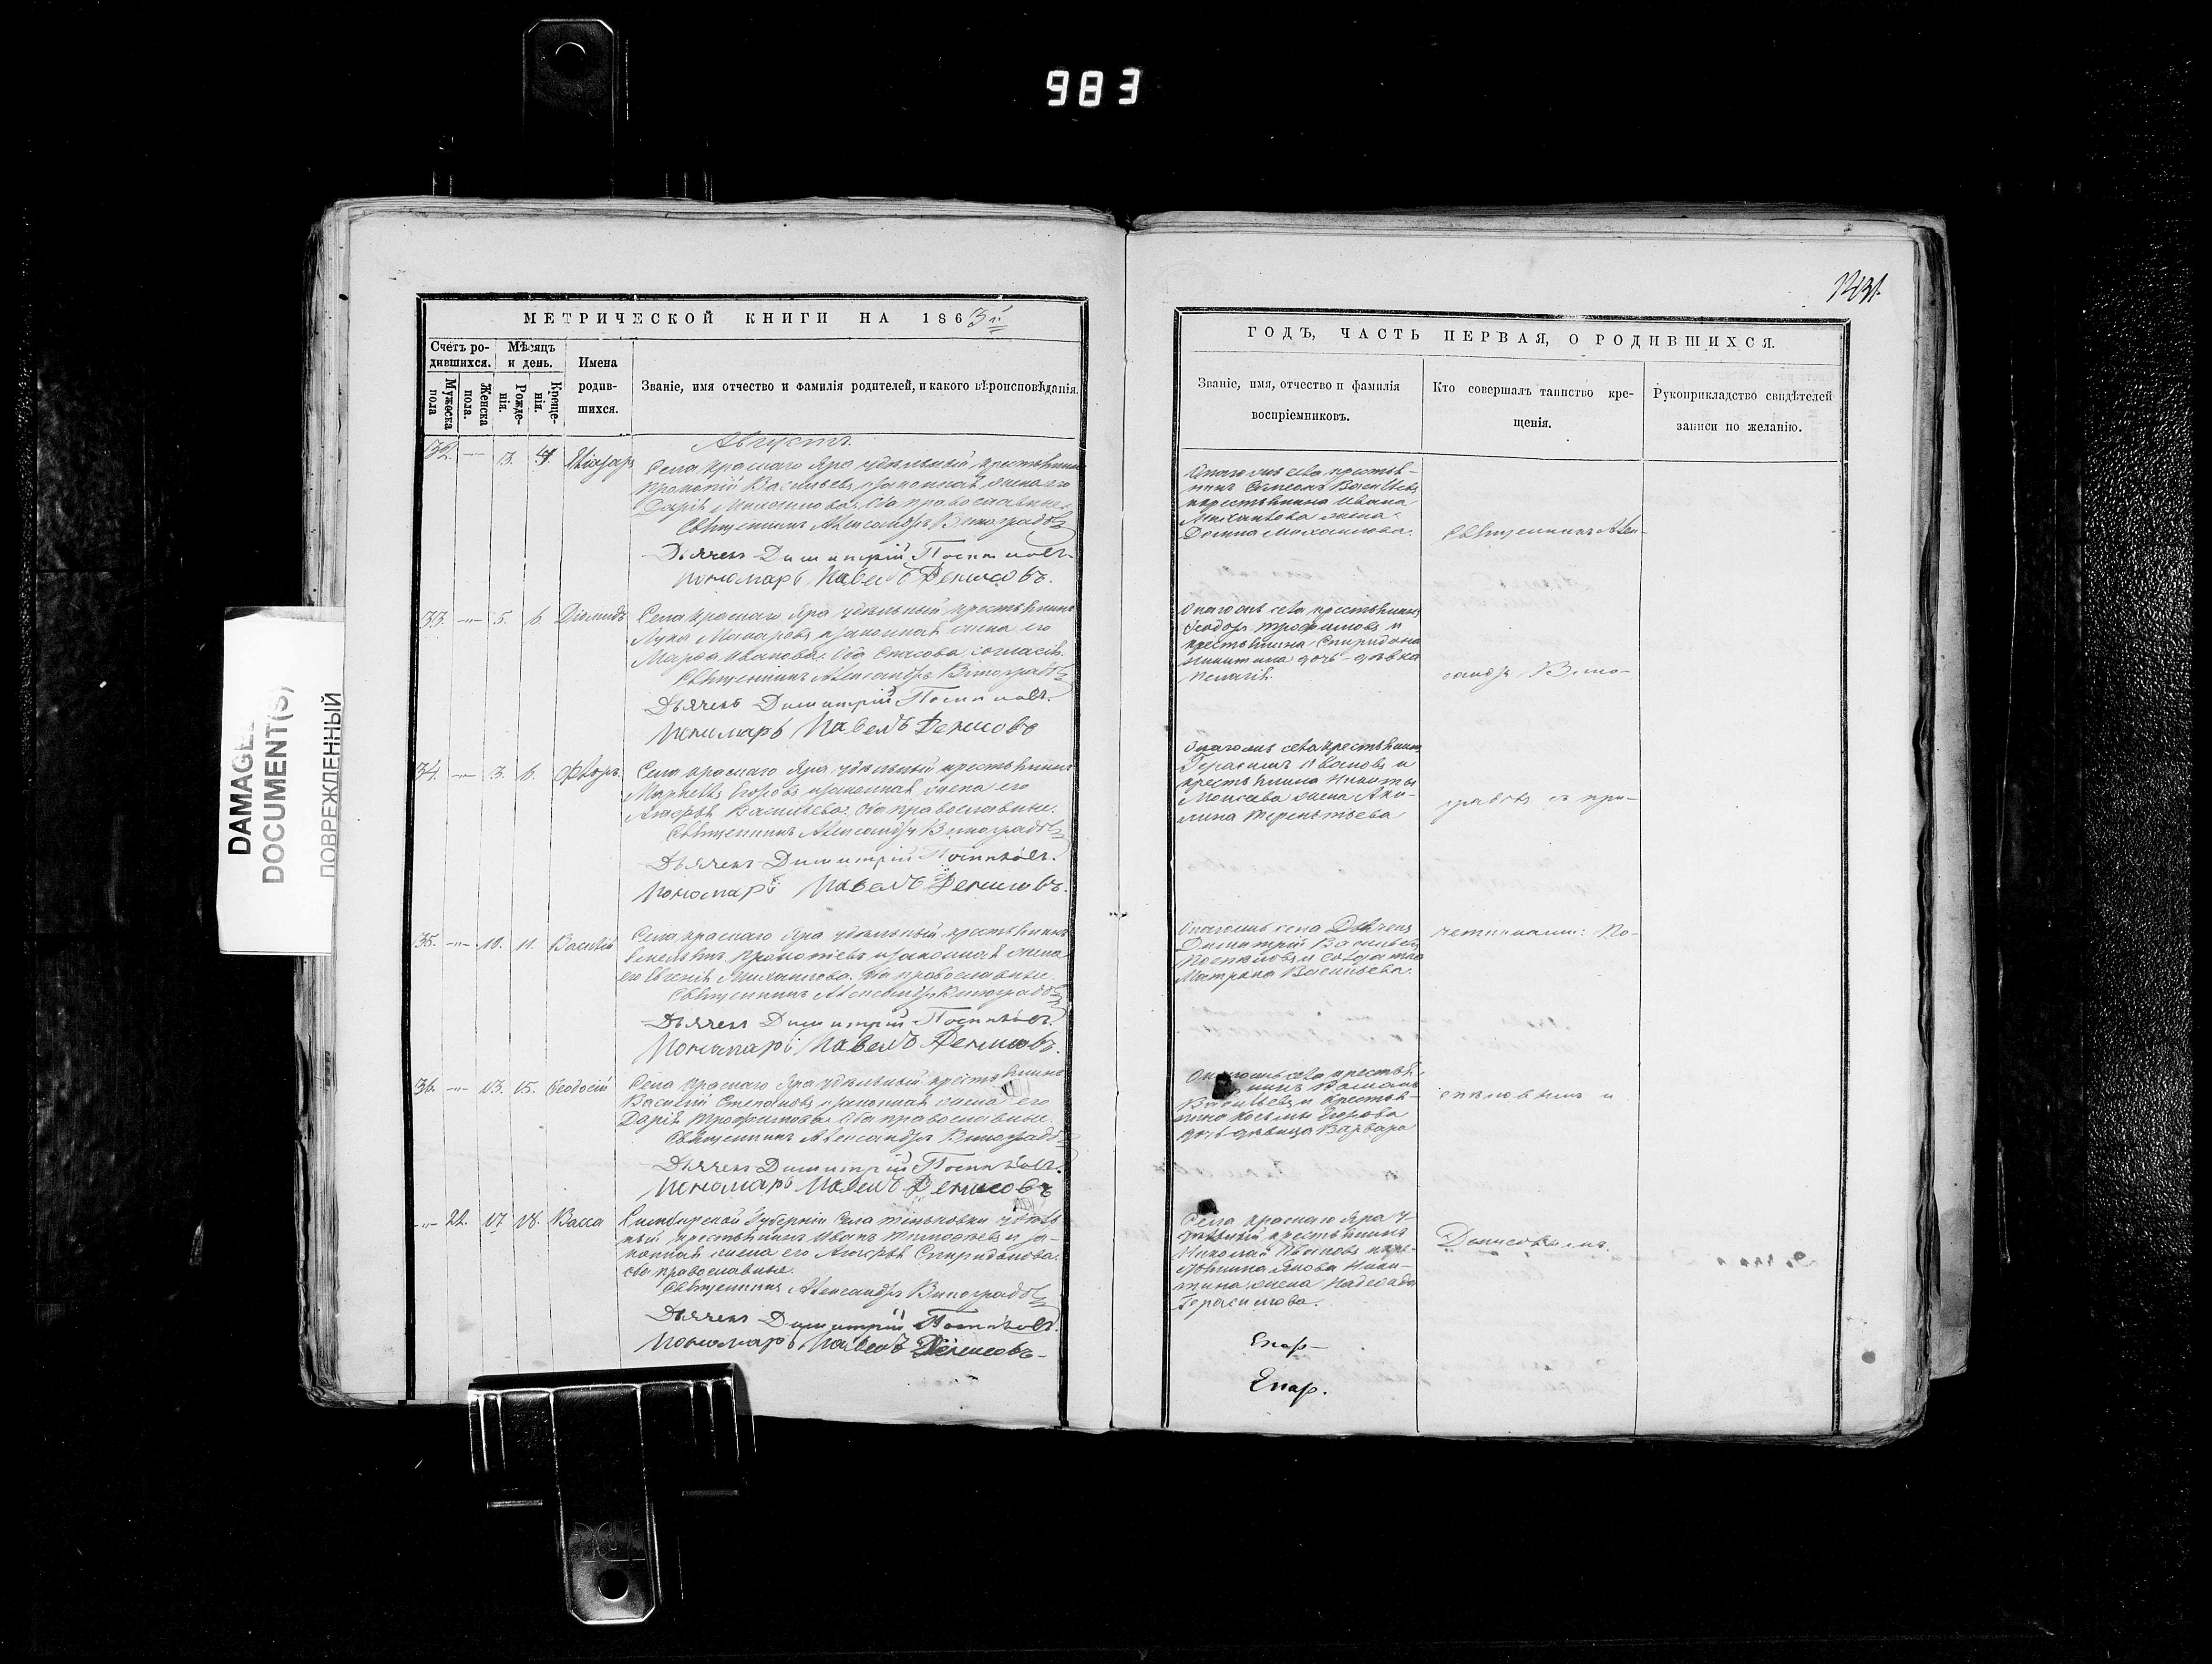 983
1431.
МЕТРИЧЕСКОЙ КНИГИ НА 1863й
Счетъ ро-
дившихся.
Мѣсяцъ
и день.
Имена
родив-
шихся.
Званіе, имя отчество и фамилія родителей, и какого вѣроисповѣданія.
Мужеска
пола
Женска
пола.
Рожде-
нія.
Креще-
нія.
Августъ
32. —„— 3. 4.
Села Краснаго Яра удѣльный крестьянинъ
Прокопій Васильевъ и законная жена его
Дарія Михаилова. Оба православные.
Священникъ Александръ Виноградовъ
Дьячекъ Димитрій Поспѣловъ.
Пономарь Павелъ Денисовъ.
33. —„— 5. 6. Діомидъ Села Краснаго Яра удѣльный крестьянинъ
Лука Макаровъ и законная жена его
Марѳа Иванова. Оба Спасова согласія.
Священникъ Александръ Виноградовъ
Дьячекъ Димитрій Поспѣловъ.
Пономарь Павелъ Денисовъ
34. —„— 3. 6. Ѳлоръ. Села Краснаго Яра удѣльный крестьянинъ
Маркеллъ Егоровъ и законная жена его
Агаѳія Васильева. Оба православные.
Священникъ Александръ Виноградовъ
Дьячекъ Димитрій Поспѣловъ.
Пономарь Павелъ Денисовъ.
35. —„— 10. 11. Василій Села Краснаго Яра удѣльный крестьянинъ
Емельянъ Прокопіевъ и законная жена
его Евгенія Михаилова. Оба православные.
Священникъ Александръ Виноградовъ
Дьячекъ Димитрій Поспѣловъ.
Пономарь Павелъ Денисовъ.
36. —„— 13. 15. Ѳеодосій Села Краснаго Яра удѣльный крестьянинъ
Василій Степановъ и законная жена его
Дарія Трофимова. Оба православные.
Священникъ Александръ Виноградовъ
Дьячекъ Димитрій Поспѣловъ.
Пономарь Павелъ Денисовъ
—„— 22. 17. 18. Васса Симбирской Губерніи Села Тіньковки удѣль-
ный крестьянинъ Иванъ Тимоѳеевъ и за-
конная жена его Агаѳія Спиридонова.
оба православные.
Священникъ Александръ Виноградовъ
Дьячекъ Димитрій Поспѣловъ.
Пономарь Павелъ Денисовъ
ГОДЪ, ЧАСТЬ ПЕРВАЯ, О РОДИВШИХСЯ.
Званіе, имя, отчество и фамилія
воспріемниковъ.
Кто совершалъ таинство кре-
щенія.
Рукоприкладство свидѣтелей
записи по желанію.
Онагожъ села крестья-
нинъ Симеонъ Васильевъ
и крестьянина Ивана
Михаилова жена
Домна Михаилова.
Священникъ Алек-
Онагожъ села крестьянинъ
Ѳеодоръ Трофимовъ и
крестьянина Спиридона
Никитина дочь-дѣвка
Пелагія.
сандръ Вино-
Онагожъ села крестьянинъ
Герасимъ Ивановъ и
крестьянина Никиты
Моисеева жена Аку-
лина Терентьева
градовъ съ при-
Онагожъ села Дьячекъ
Димитрій Васильевъ
Поспѣловъ и солдатка
Матрона Васильева.
четниками: По-
Онагожъ села крестья-
нинъ Романъ
Васильевъ и крестья-
нина Косьмы Егорова
дочь-дѣвица Варвара
спѣловымъ и
Села Краснаго Яра у-
дѣльный крестьянинъ
Николай Ивановъ и кре-
стьянина Якова Ники-
тина жена Надежда
Герасимова.
Денисовымъ.
Епар-
Епар.
DAMAGED
DOCUMENT(S)
ПОВРЕЖДЕННЫЙ